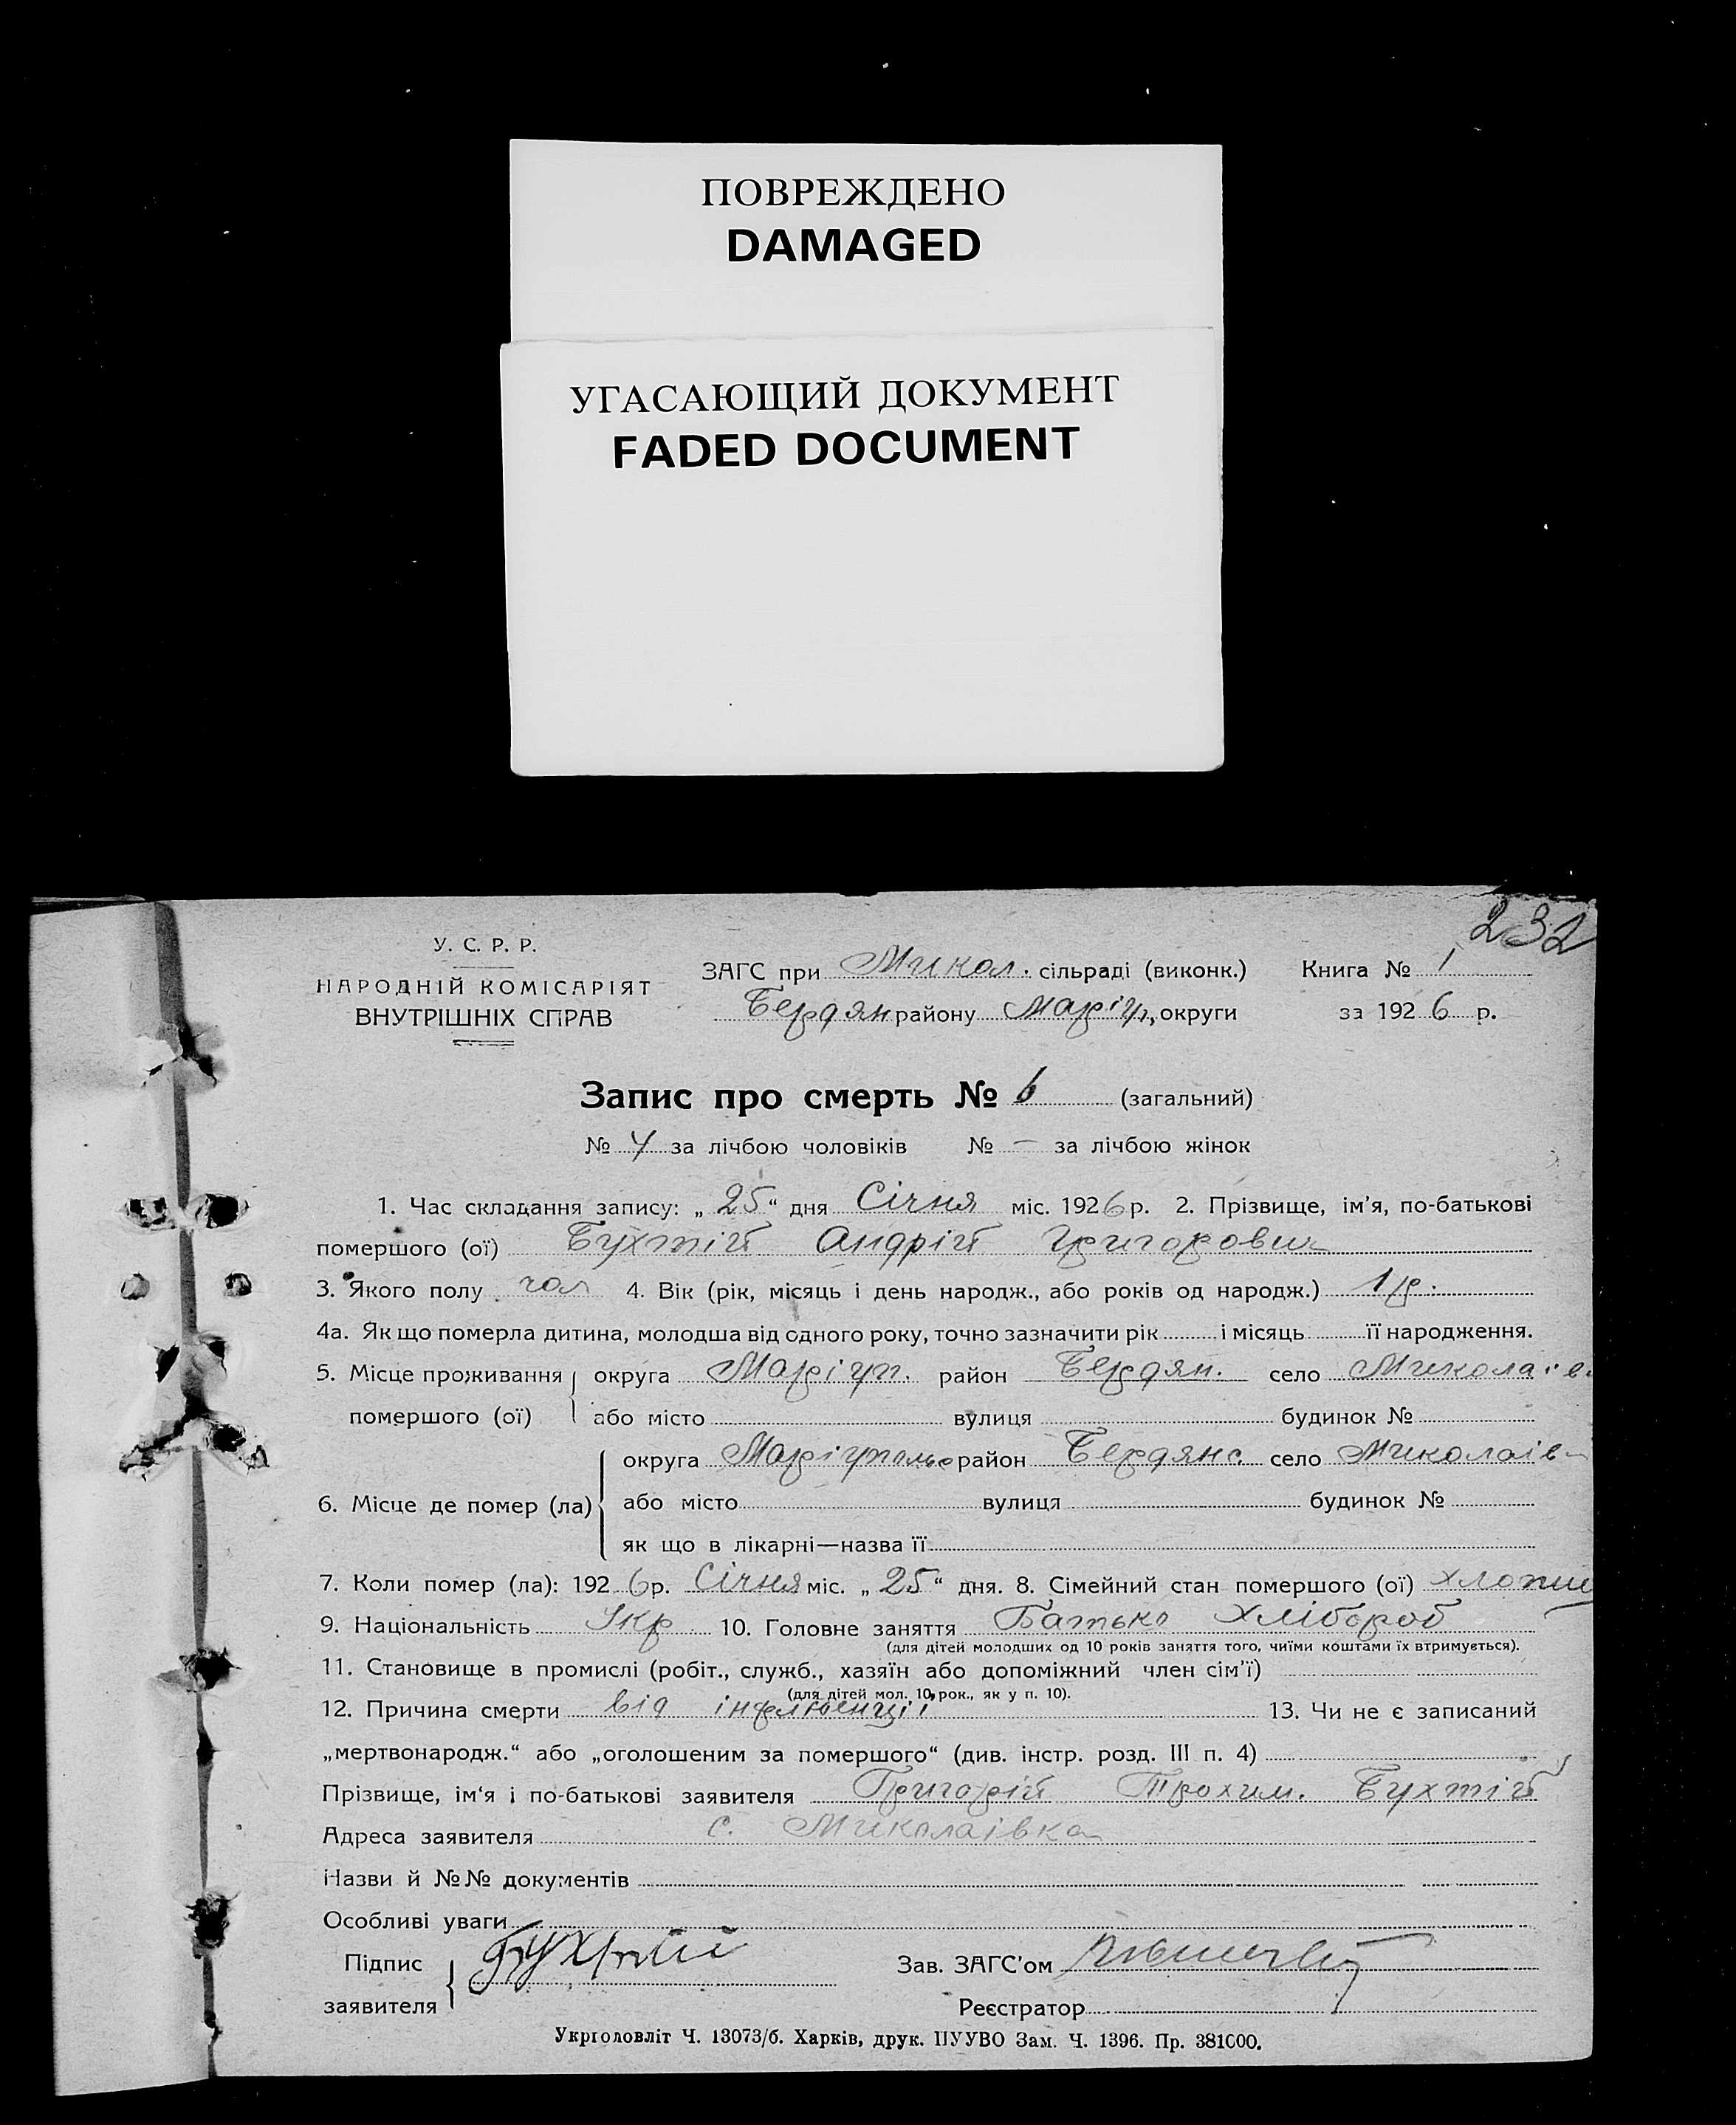 ПОВРЕЖДЕНО
DAMAGED
УГАСАЮЩИЙ ДОКУМЕНТ
FADED DOCUMENT
232
У. С. Р. Р.
НАРОДНІЙ КОМІСАРІЯТ
ВНУТРІШНІХ СПРАВ
ЗАГС при Микол. сільраді (виконк.) Книга № 1
Бердян району Маріуп, округи за 1926 р.
Запис про смерть № 6 (загальний)
№ 4 за лічбою чоловіків № — за лічбою жінок
1. Час складання запису: „25“ дня Січня міс. 1926 р. 2. Прізвище, ім'я, по-батькові
помершого (ої) Бухтій Андрій Григорович
3. Якого полу чол 4. Вік (рік, місяць і день народж., або років од народж.) 1 р.
4а. Як що померла дитина, молодша від одного року, точно зазначити рік і місяць її народження.
5. Місце проживання помершого (ої) округа Маріуп. район Бердян. село Миколаїв.
або місто вулиця будинок №
6. Місце де помер (ла) округа Маріупольс район Бердянс село Миколаїв
або місто вулиця будинок №
як що в лікарні—назва її
7. Коли помер (ла): 1926 р. Січня міс. „25“ дня. 8. Сімейний стан помершого (ої) хлопець
9. Національність Укр. 10. Головне заняття Батько Хлібороб
(для дітей молодших од 10 років заняття того, чиїми коштами їх втримується).
11. Становище в промислі (робіт., служб., хазяїн або допоміжний член сім'ї)
(для дітей мол. 10 рок., як у п. 10).
12. Причина смерти від інфлюенції 13. Чи не є записаний
„мертвонародж.“ або „оголошеним за помершого“ (див. інстр. розд. III п. 4)
Прізвище, ім'я і по-батькові заявителя Григорій Трохим. Бухтій
Адреса заявителя с. Миколаївка
Назви й №№ документів
Особливі уваги
Підпис заявителя Бухтий
Зав. ЗАГС'ом
Реєстратор
Укрголовліт Ч. 13073/б. Харків, друк. ПУУВО Зам. Ч. 1396. Пр. 381000.